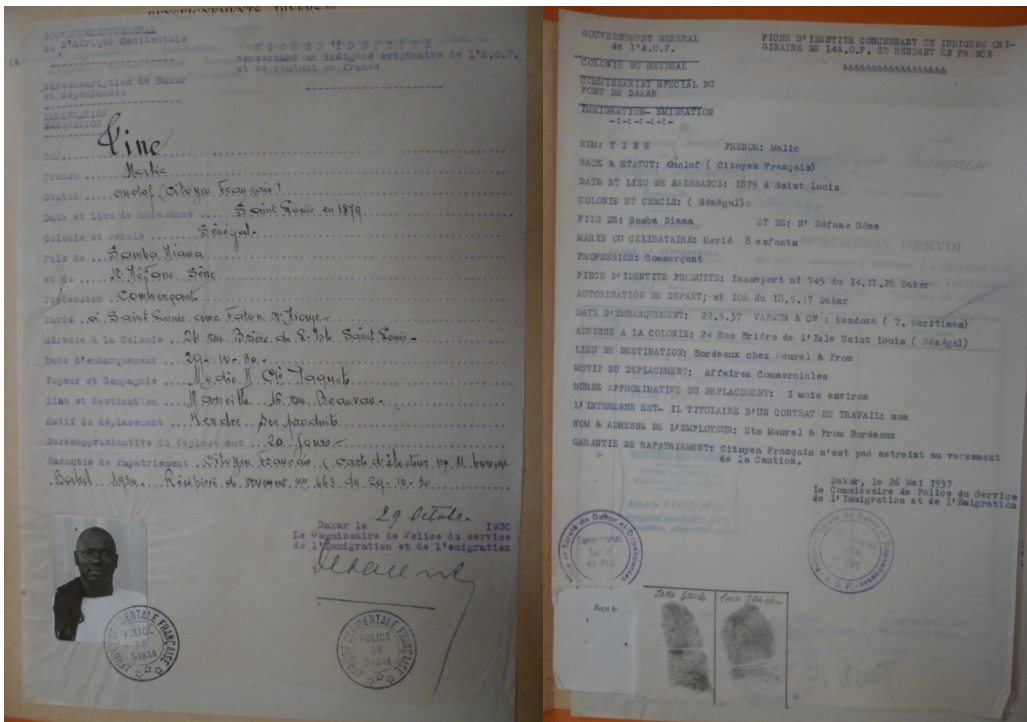 GOUVERNEMENT GENERAL
de l'Afrique Occidentale
Circonscription de Dakar
et dépendances
IMMIGRATION
EMIGRATION
FICHE D'IDENTITE
concernant un indigène originaire de l'A.O.F.
et se rendant en France
NOM Tine
Prenom Malic
Statut ouolof (Citoyen Français)
Date et lieu de naissance Saint Louis en 1879
Colonie et cercle Sénégal
Fils de Samba Diama
et de N'Défane Sène
Profession Commerçant
Marié à Saint Louis avec Faton N'Diaye
Adresse à la Colonie 24 rue Brière de l'Isle Saint Louis
Date d'embarquement 29-10-30
Vapeur et Compagnie Medie II Cie Paquet
Lieu et destination Marseille 16 rue Beauvau
Motif du déplacement Vendre ses produits
Duréeapproximative du déplacement 20 jours
Garantie de rapatriement Citoyen Français (carte d'électeur no 11 bureau
1930. Récépissé de versement no 663 du 29-10-30
Dakar le 29 Octobre 1930
Le Commissaire de Police du service
de l'immigration et de l'emigration
AFRIQUE OCCIDENTALE FRANÇAISE
POLICE
DE
DAKAR
AFRIQUE OCCIDENTALE FRANÇAISE
POLICE
DE
DAKAR
GOUVERNEMENT GENERAL
de l'A.O.F.
COLONIE DU SENEGAL
COMMISSARIAT SPECIAL DU
PORT DE DAKAR
IMMIGRATION- EMIGRATION
-:-:-:-:-:-
FICHE D'IDENTITE CONCERNANT UN INDIGENE ORI-
GINAIRE DE L4A.O.F. SE RENDANT EN FRANCE
NOM: T I N E PRENOM: Malic
RACE & STATUT: Ouolof ( Citoyen Français)
DATE ET LIEU DE NAISSANCE: 1879 à Saint Louis
COLONIE ET CERCLE: ( Sénégal)
FILS DE: Samba Diama ET DE: N' Défane Sène
MARIE OU CELIBATAIRE: Marié 8 enfants
PROFESSION: Commerçant
PIECE D'IDENTITE PRODUITS: Passeport n° 745 du 14.II.28 Dakar
AUTORISATION DE DEPART; n° 106 du 18.5.37 Dakar
DATE D'EMBARQUEMENT: 22.5.37 VAPEUR & Cie : Mendoza ( T. Maritimes)
ADRESSE A LA COLONIE: 24 Rue Brière de l'Isle Saint Louis ( Sénégal)
LIEU DE DESTINATION: Bordeaux chez Maurel & Prom
MOTIF DU DEPLACEMENT: Affaires Commerciales
DUREE APPROXIMATIVE DU DEPLACEMENT: I mois environ
L'INTERESSE EST- IL TITULAIRE D'UN CONTRAT DE TRAVAIL: non
NOM & ADRESSE DE L'EMPLOYEUR: Ets Maurel & Prom Bordeaux
GARANTIE DE RAPATRIEMENT: Citoyen Français n'est pas astreint au versement
de la Caution.
Dakar, le 26 Mai 1937
Le Commissaire de Police du Service
de l'Immigration et de l'Emigration
Reçu le